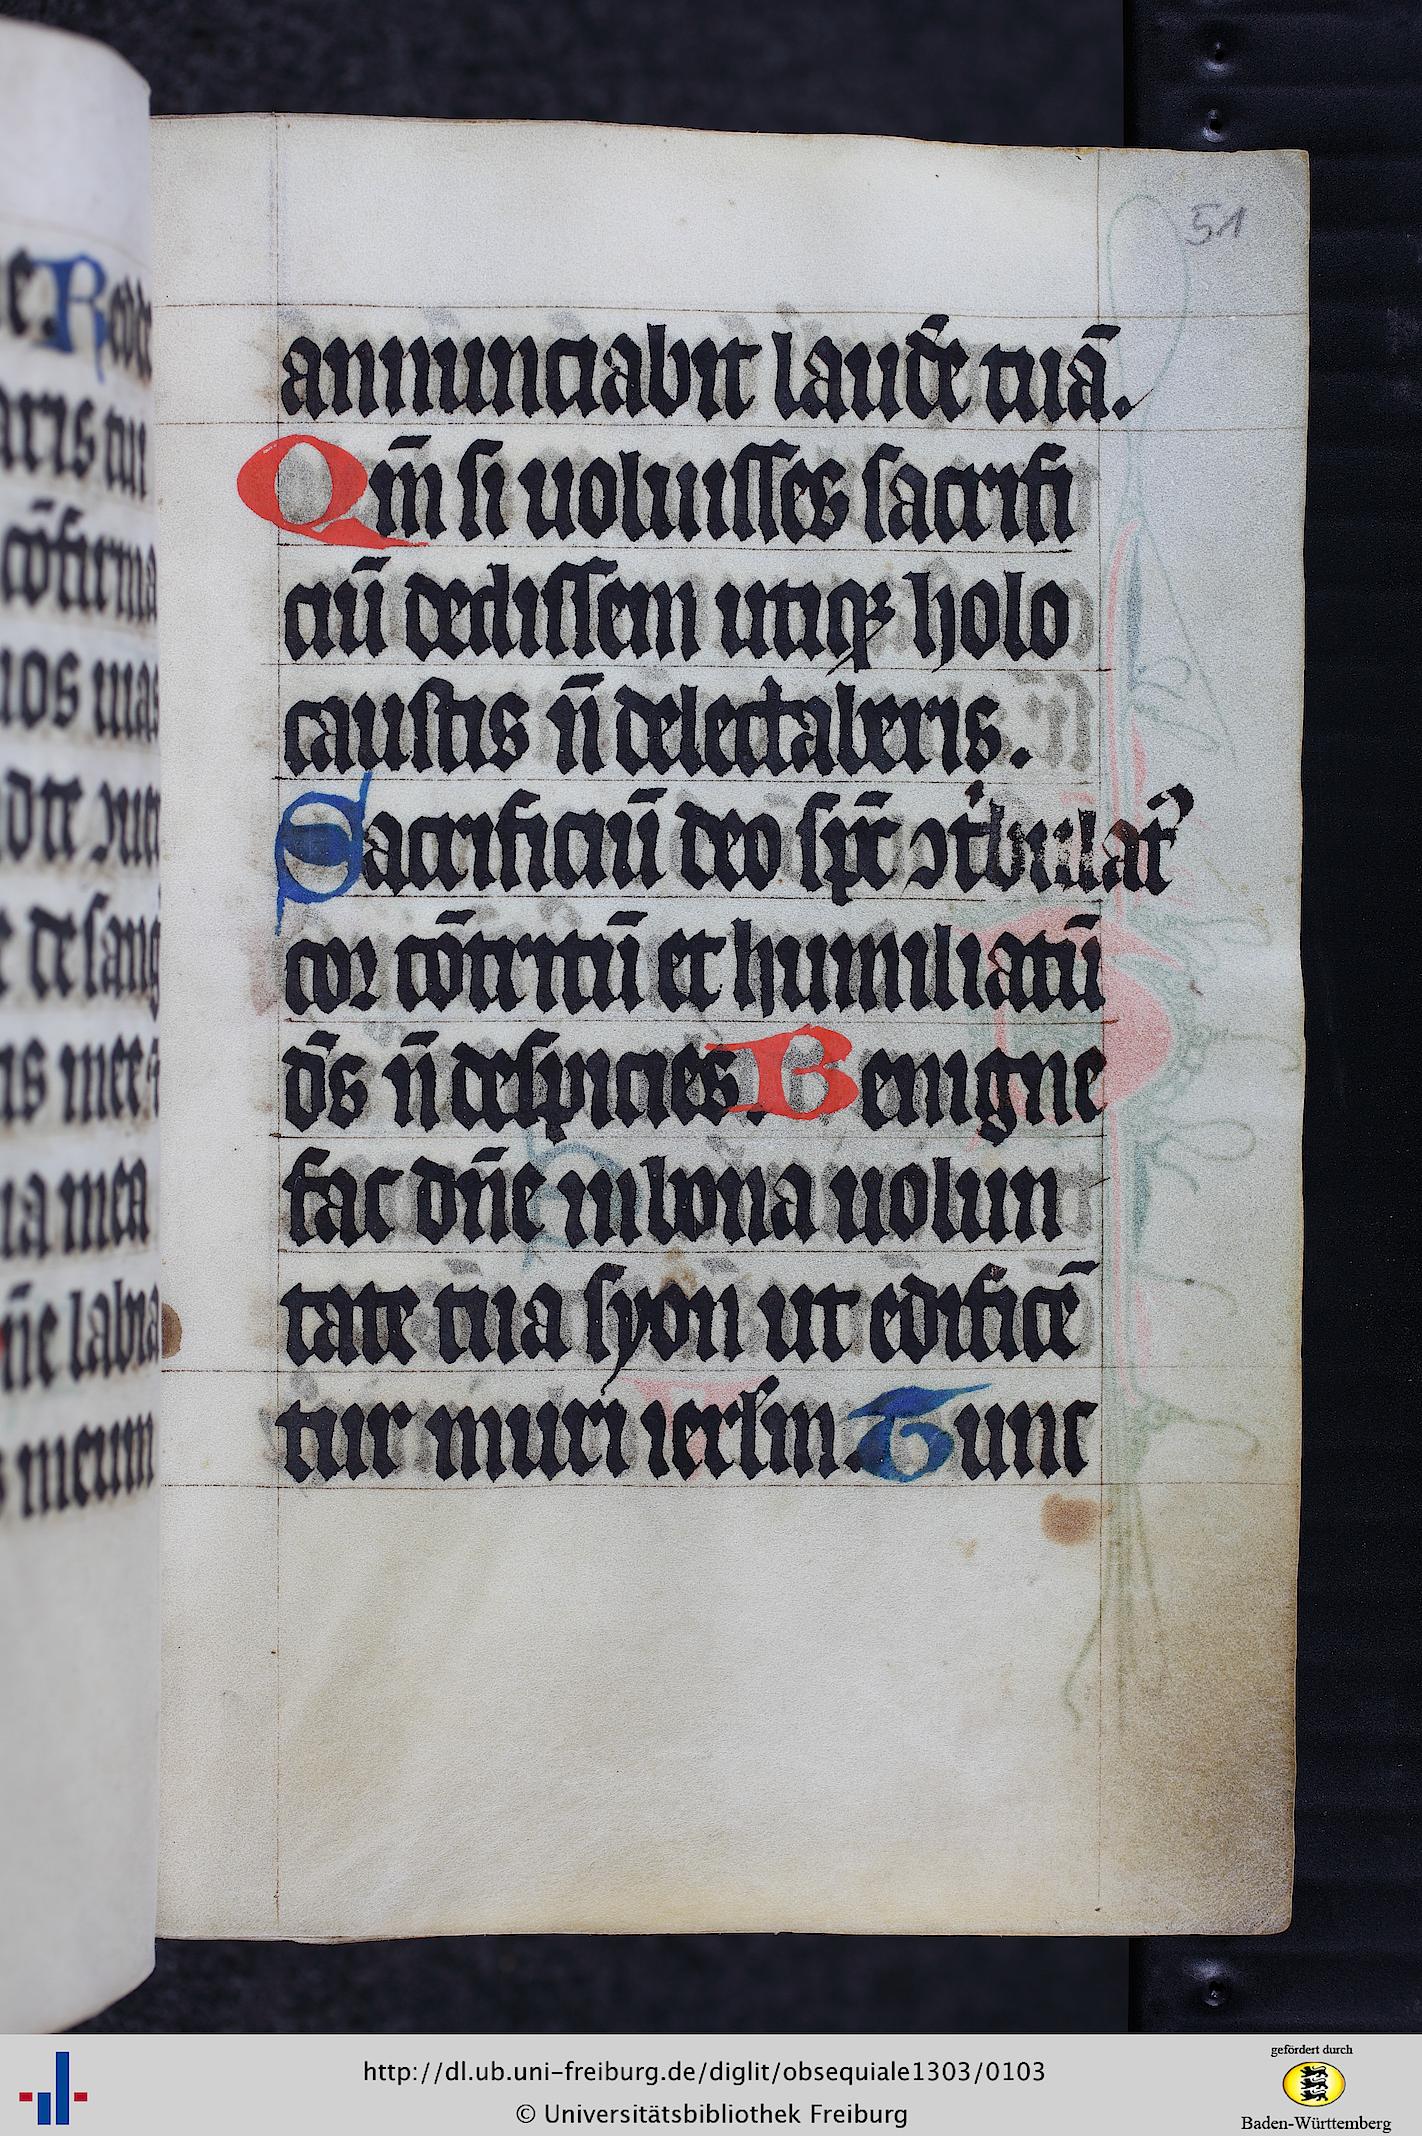 51
annunciabit laudē tuā.
Qm̄ si uoluisses sacrifi
ciū dedissem utiqꝫ holo
caustis n̄ delectaberis.
Sacrificiū deo sp̄c ↄtͥbulatꝰ
cor cōtritū et humiliatū
d̄s n̄ despicies. Benigne
fac dn̄e in bona uolun
tate tua syon ut edificē
tur muri ierl̄m. Tunc
http://dl.ub.uni-freiburg.de/diglit/obsequiale1303/0103
© Universitätsbibliothek Freiburg
gefördert durch
Baden-Württemberg